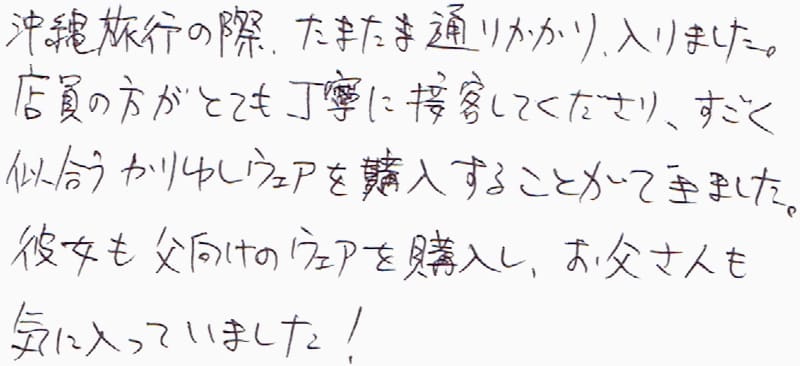 沖縄旅行の際、たまたま通りかかり、入りました。
店員の方がとても丁寧に接客してくださり、すごく
似合うかりゆしウェアを購入することができました。
彼女も父向けのウェアを購入し、お父さんも
気に入っていました！